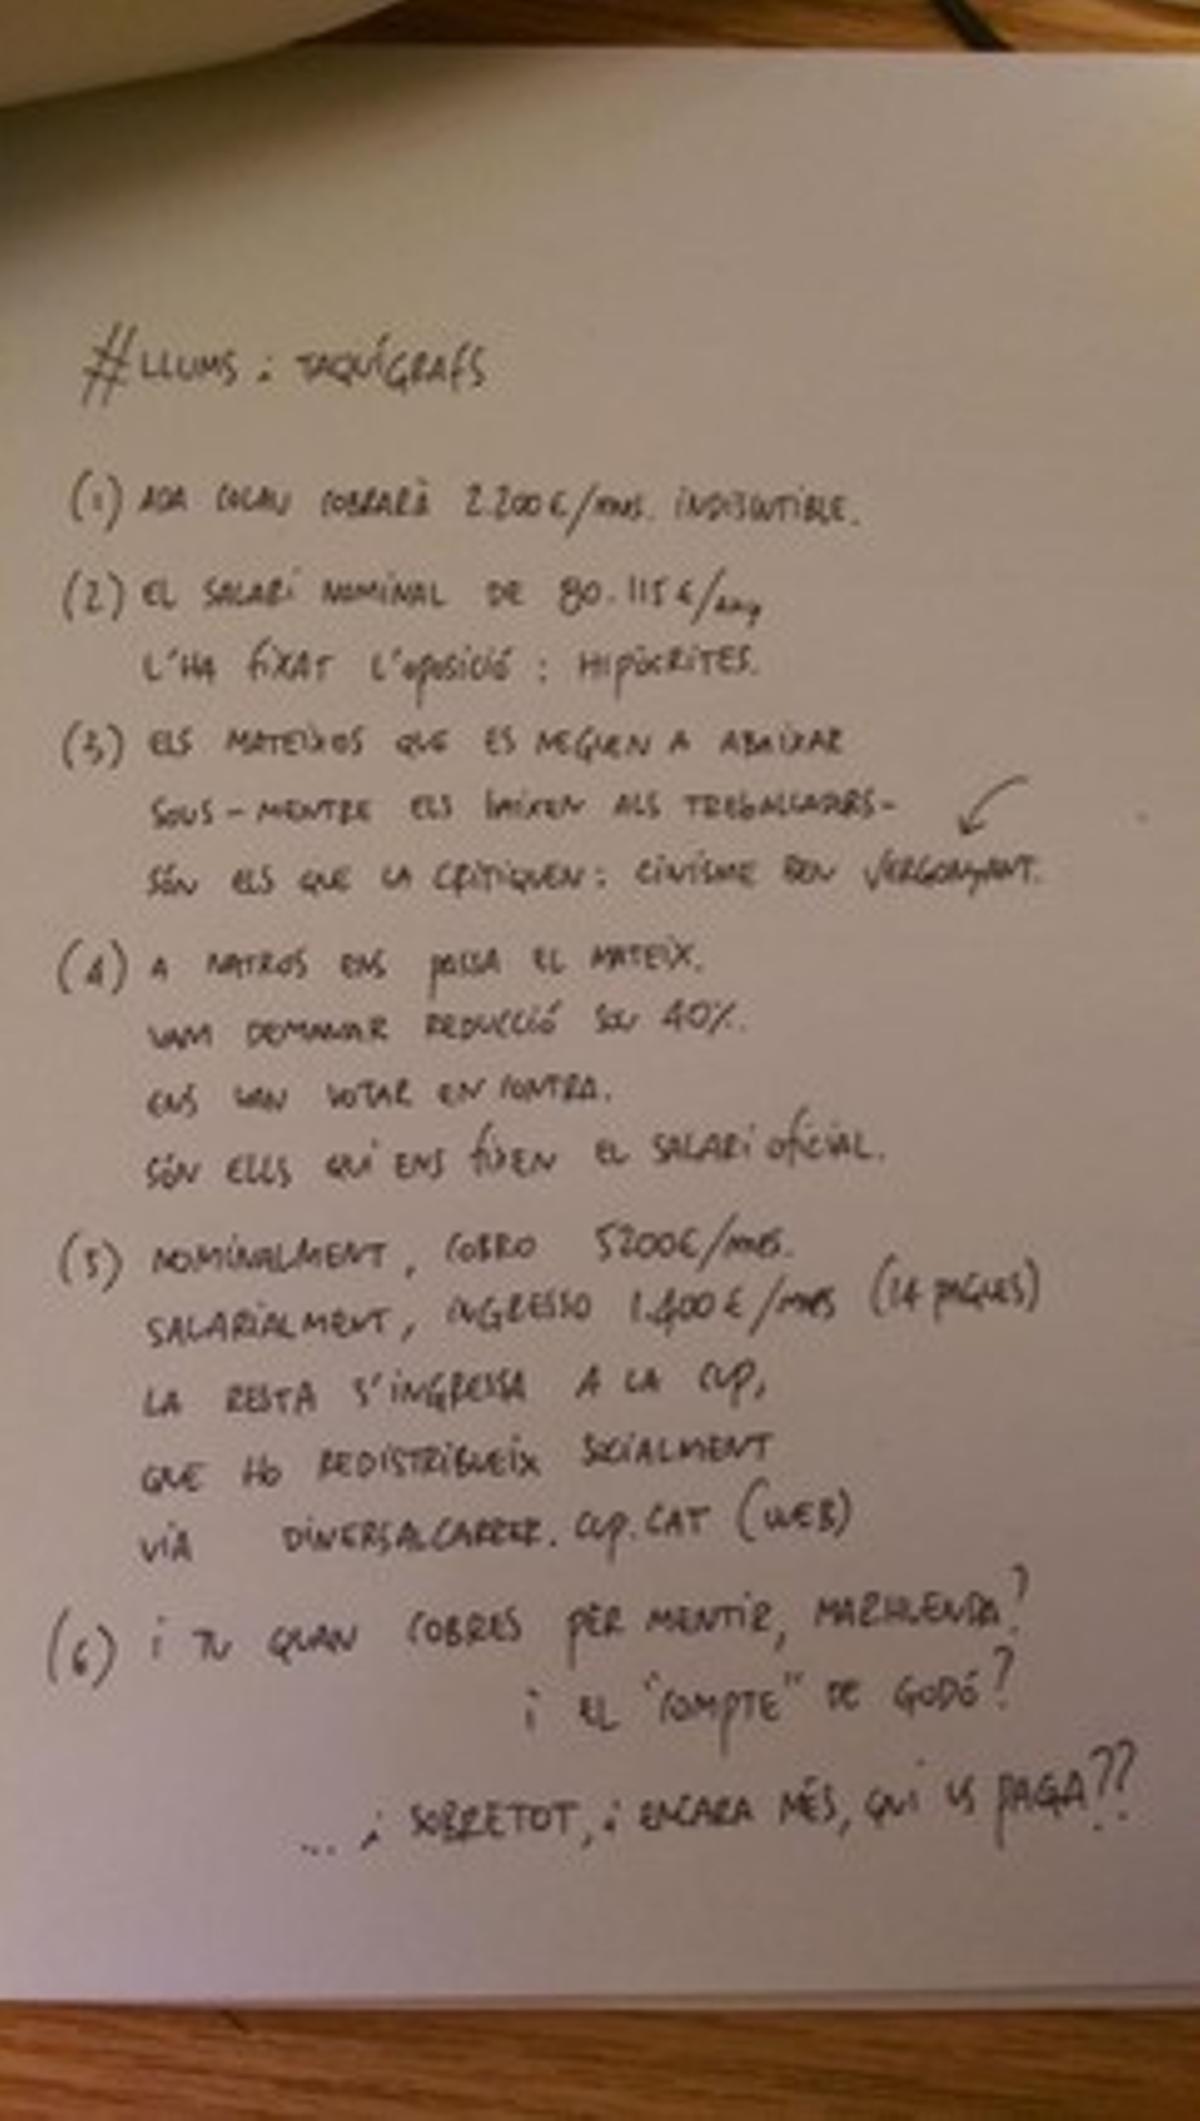 #LLUMS i TAQUÍGRAFS
(1) ADA COLAU COBRARÀ 2.200€/MES. INDISCUTIBLE.
(2) EL SALARI NOMINAL DE 80.115€/any
L'HA FIXAT L'OPOSICIÓ: HIPÒCRITES.
(3) ELS MATEIXOS QUE ES NEGUEN A ABAIXAR
SOUS - MENTRE ELS BAIXEN ALS TREBALLADORS -
SÓN ELS QUE LA CRITIQUEN: CINISME BEN VERGONYANT.
(4) A NATROS ENS PASSA EL MATEIX.
VAM DEMANAR REDUCCIÓ SOU 40%.
ENS VAN VOTAR EN CONTRA.
SÓN ELLS QUI ENS FIXEN EL SALARI OFICIAL.
(5) NOMINALMENT, COBRO 5200€/MES.
SALARIALMENT, INGRESSO 1.400€/MES (14 PAGUES)
LA RESTA S'INGRESSA A LA CUP,
QUE HO REDISTRIBUEIX SOCIALMENT
VIA DINERSALCARRER.CUP.CAT (WEB)
(6) I TU QUAN COBRES PER MENTIR, MARHUENDA?
I EL "COMPTE" DE GODÓ?
... i SOBRETOT, i ENCARA MÉS, QUI US PAGA??